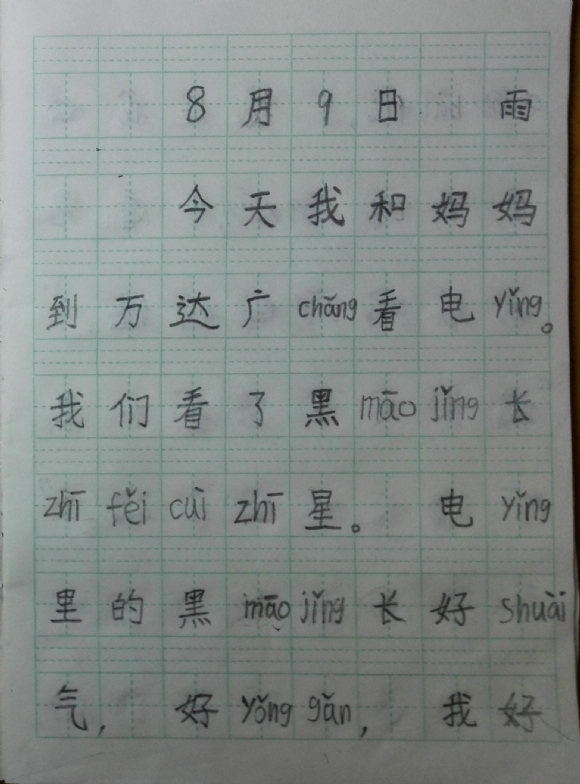 8月9日 雨
今天我和妈妈
到万达广chǎng看电yǐng。
我们看了黑māo jǐng长
zhī fěi cuì zhī星。电yǐng
里的黑māo jǐng长好shuài
气，好yǒng gǎn，我好